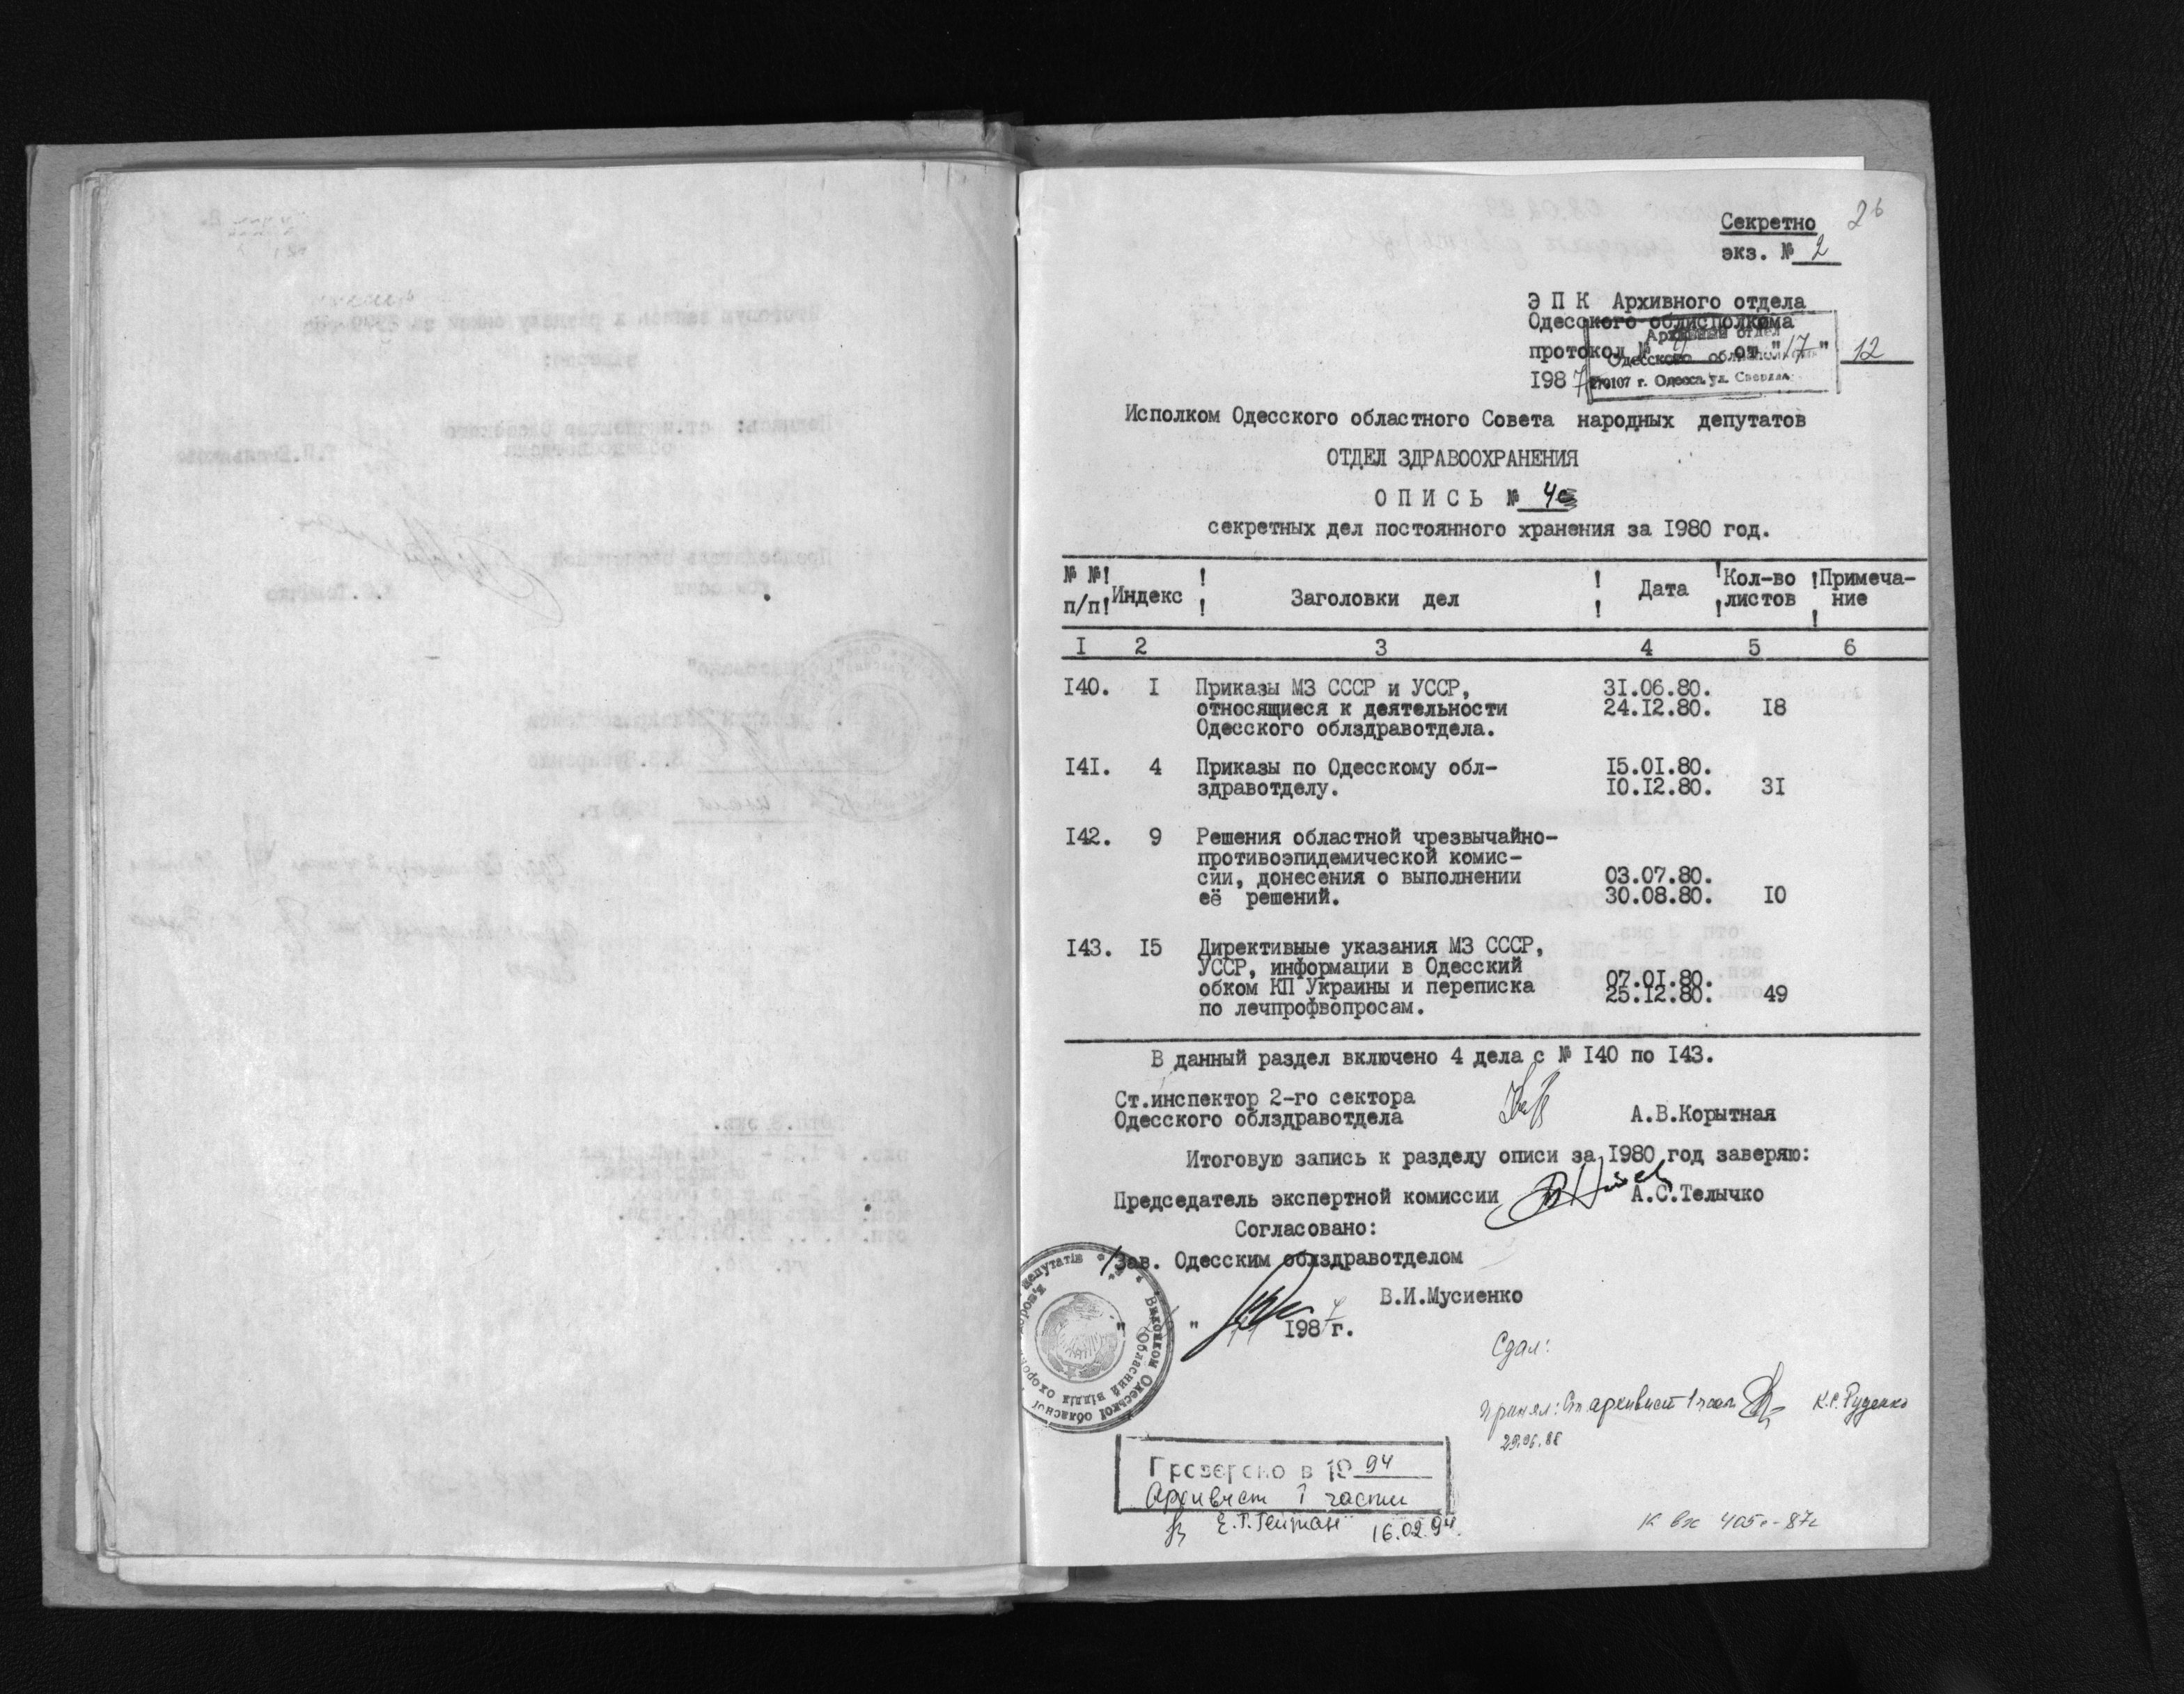 26
Секретно
экз. № 2
Э П К Архивного отдела
Одесского облисполкома
Архивный отдел
протокол № от "17" 12
Одесского облисполкома
1987
270107 г. Одесса ул. Свердл
Исполком Одесского областного Совета народных депутатов
ОТДЕЛ ЗДРАВООХРАНЕНИЯ
О П И С Ь № 4с
секретных дел постоянного хранения за I980 год.
№ №! п/п! Индекс ! Заголовки дел ! Дата ! Кол-во листов ! Примеча-ние
I 2 3 4 5 6
I40. I Приказы МЗ СССР и УССР, 3I.06.80.
относящиеся к деятельности 24.I2.80. I8
Одесского облздравотдела.
I4I. 4 Приказы по Одесскому обл- I5.0I.80.
здравотделу. I0.I2.80. 3I
I42. 9 Решения областной чрезвычайно-
противоэпидемической комис-
сии, донесения о выполнении 03.07.80.
её решений. 30.08.80. I0
I43. I5 Директивные указания МЗ СССР,
УССР, информации в Одесский 07.0I.80.
обком КП Украины и переписка 25.I2.80. 49
по лечпрофвопросам.
В данный раздел включено 4 дела с № I40 по I43.
Ст.инспектор 2-го сектора
Одесского облздравотдела А.В.Корытная
Итоговую запись к разделу описи за I980 год заверяю:
Председатель экспертной комиссии А.С.Телычко
Согласовано:
Зав. Одесским облздравотделом
В.И.Мусиенко
" " 1987 г.
Виконком Одеської обласної депутатів
Обласний відділ охорони здоров'я
Сдал:
Принял: Ст. архивист 1 части К.С. Руденко
29.06.88
Проверено в 19 94
Архивист 1 части
Е.Г. Гейтман 16.02.94.
К вх 405с-87г